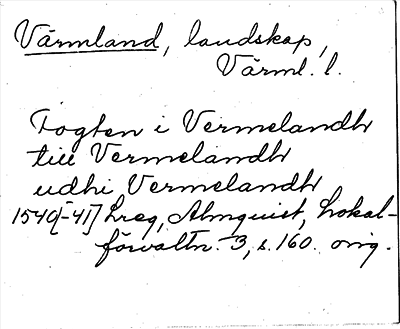 Värmland, landskap,
Värml. l.
Fogten i Vermelandh
till Vermelandh
udhi Vermelandh
1540[-41] Lreg, Almquist, Lokal-
förvaltn. 3, s. 160. orig.